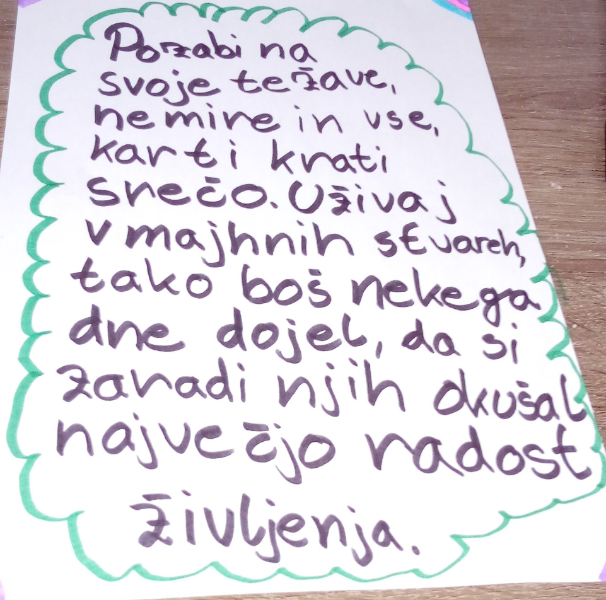 Pozabi na
svoje težave,
nemire in vse,
kar ti krati
srečo. Uživaj
v majhnih stvareh,
tako boš nekega
dne dojel, da si
zaradi njih okušal
največjo radost
življenja.